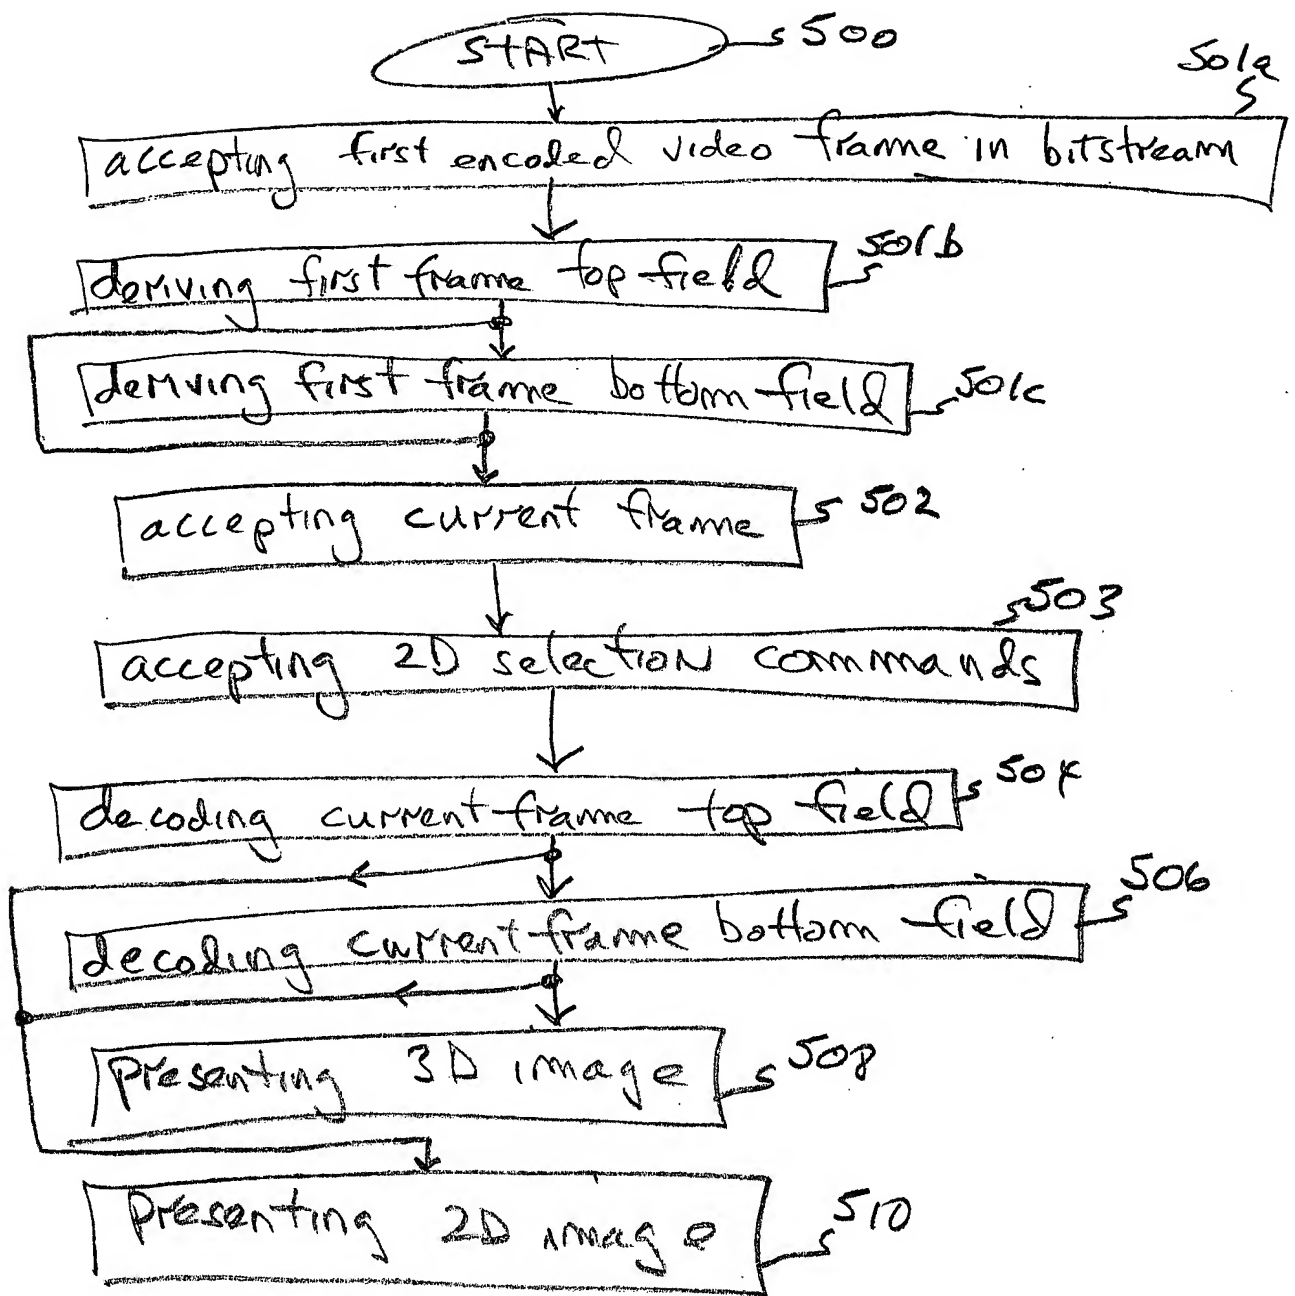 START 500
501a
accepting first encoded video frame in bitstream
deriving first frame top field 501b
deriving first frame bottom field 501c
accepting current frame 502
503
accepting 2D selection commands
decoding current frame top field 504
decoding current frame bottom field 506
presenting 3D image 508
presenting 2D image 510